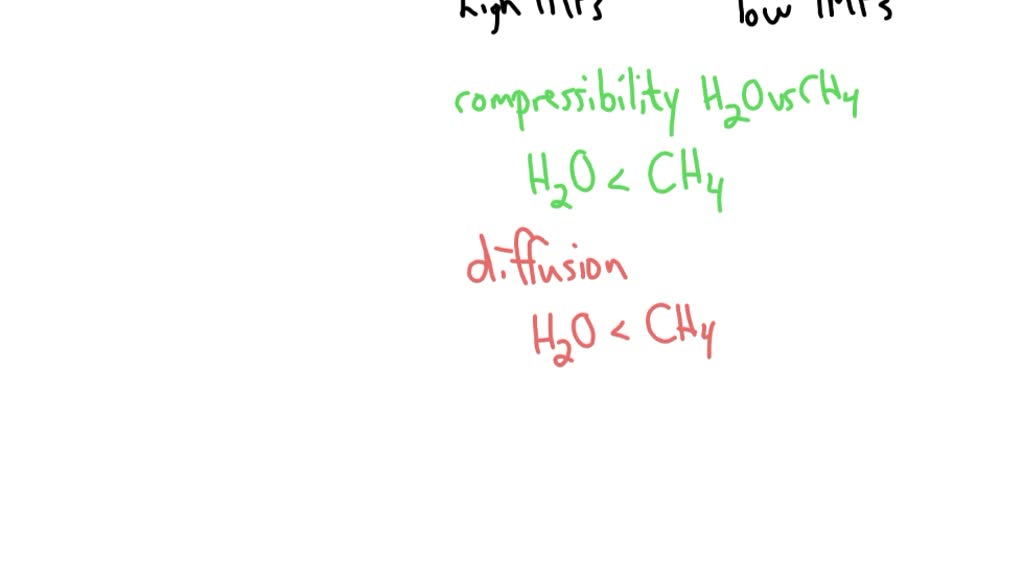 high IMFs low IMFs
compressibility H₂O vs CH₄
H₂O < CH₄
diffusion
H₂O < CH₄